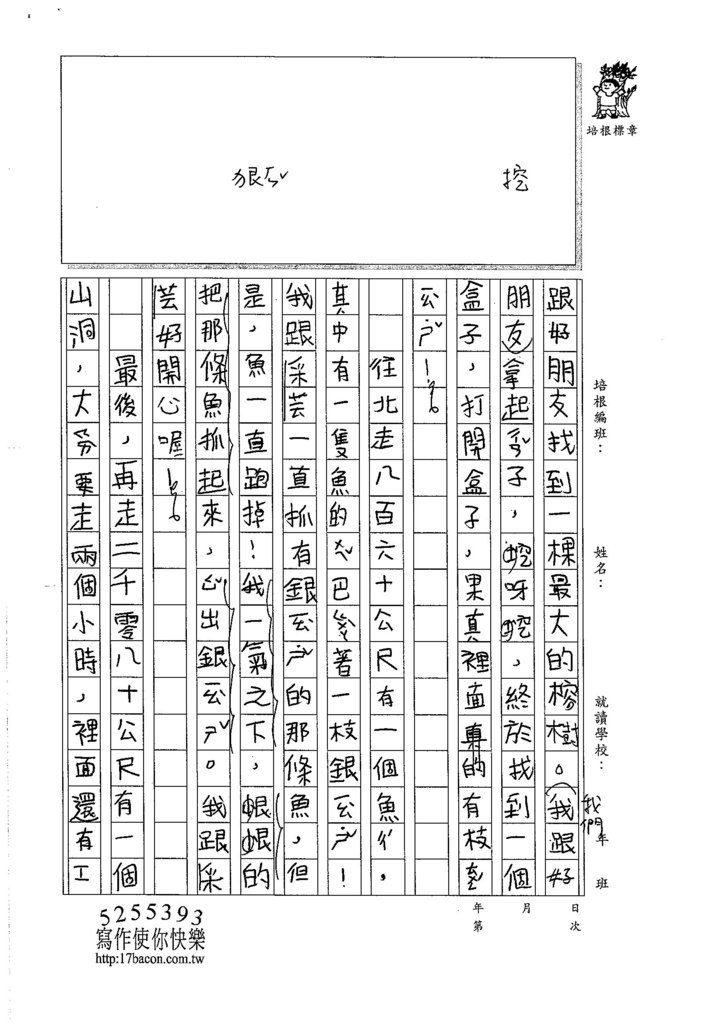 培根標章
挖
狠ㄏㄣˇ
培根編班：
姓名：
就讀學校：
年
班
我們
跟好朋友找到一棵最大的榕樹。我跟好
朋友拿起子，蛇呀蛇，終於找到一個
盒子，打開盒子，果真裡面真的有枝
ㄕˊ！
往北走八百六十公尺有一個魚ㄔˊ，
其中有一隻魚的巴著一枝銀ㄕˊ！
我跟采芸一直抓有銀ㄕˊ的那條魚，但
是，魚一直跑掉！我一氣之下，蛝蛝的
把那條魚抓起來，出銀ㄕˊ。我跟采
芸好開心喔！
最後，再走二千零八十公尺有一個
山洞，大旁要走兩個小時，裡面還有工
日
次
月
年
第
5255393
寫作使你快樂
http:17bacon.com.tw